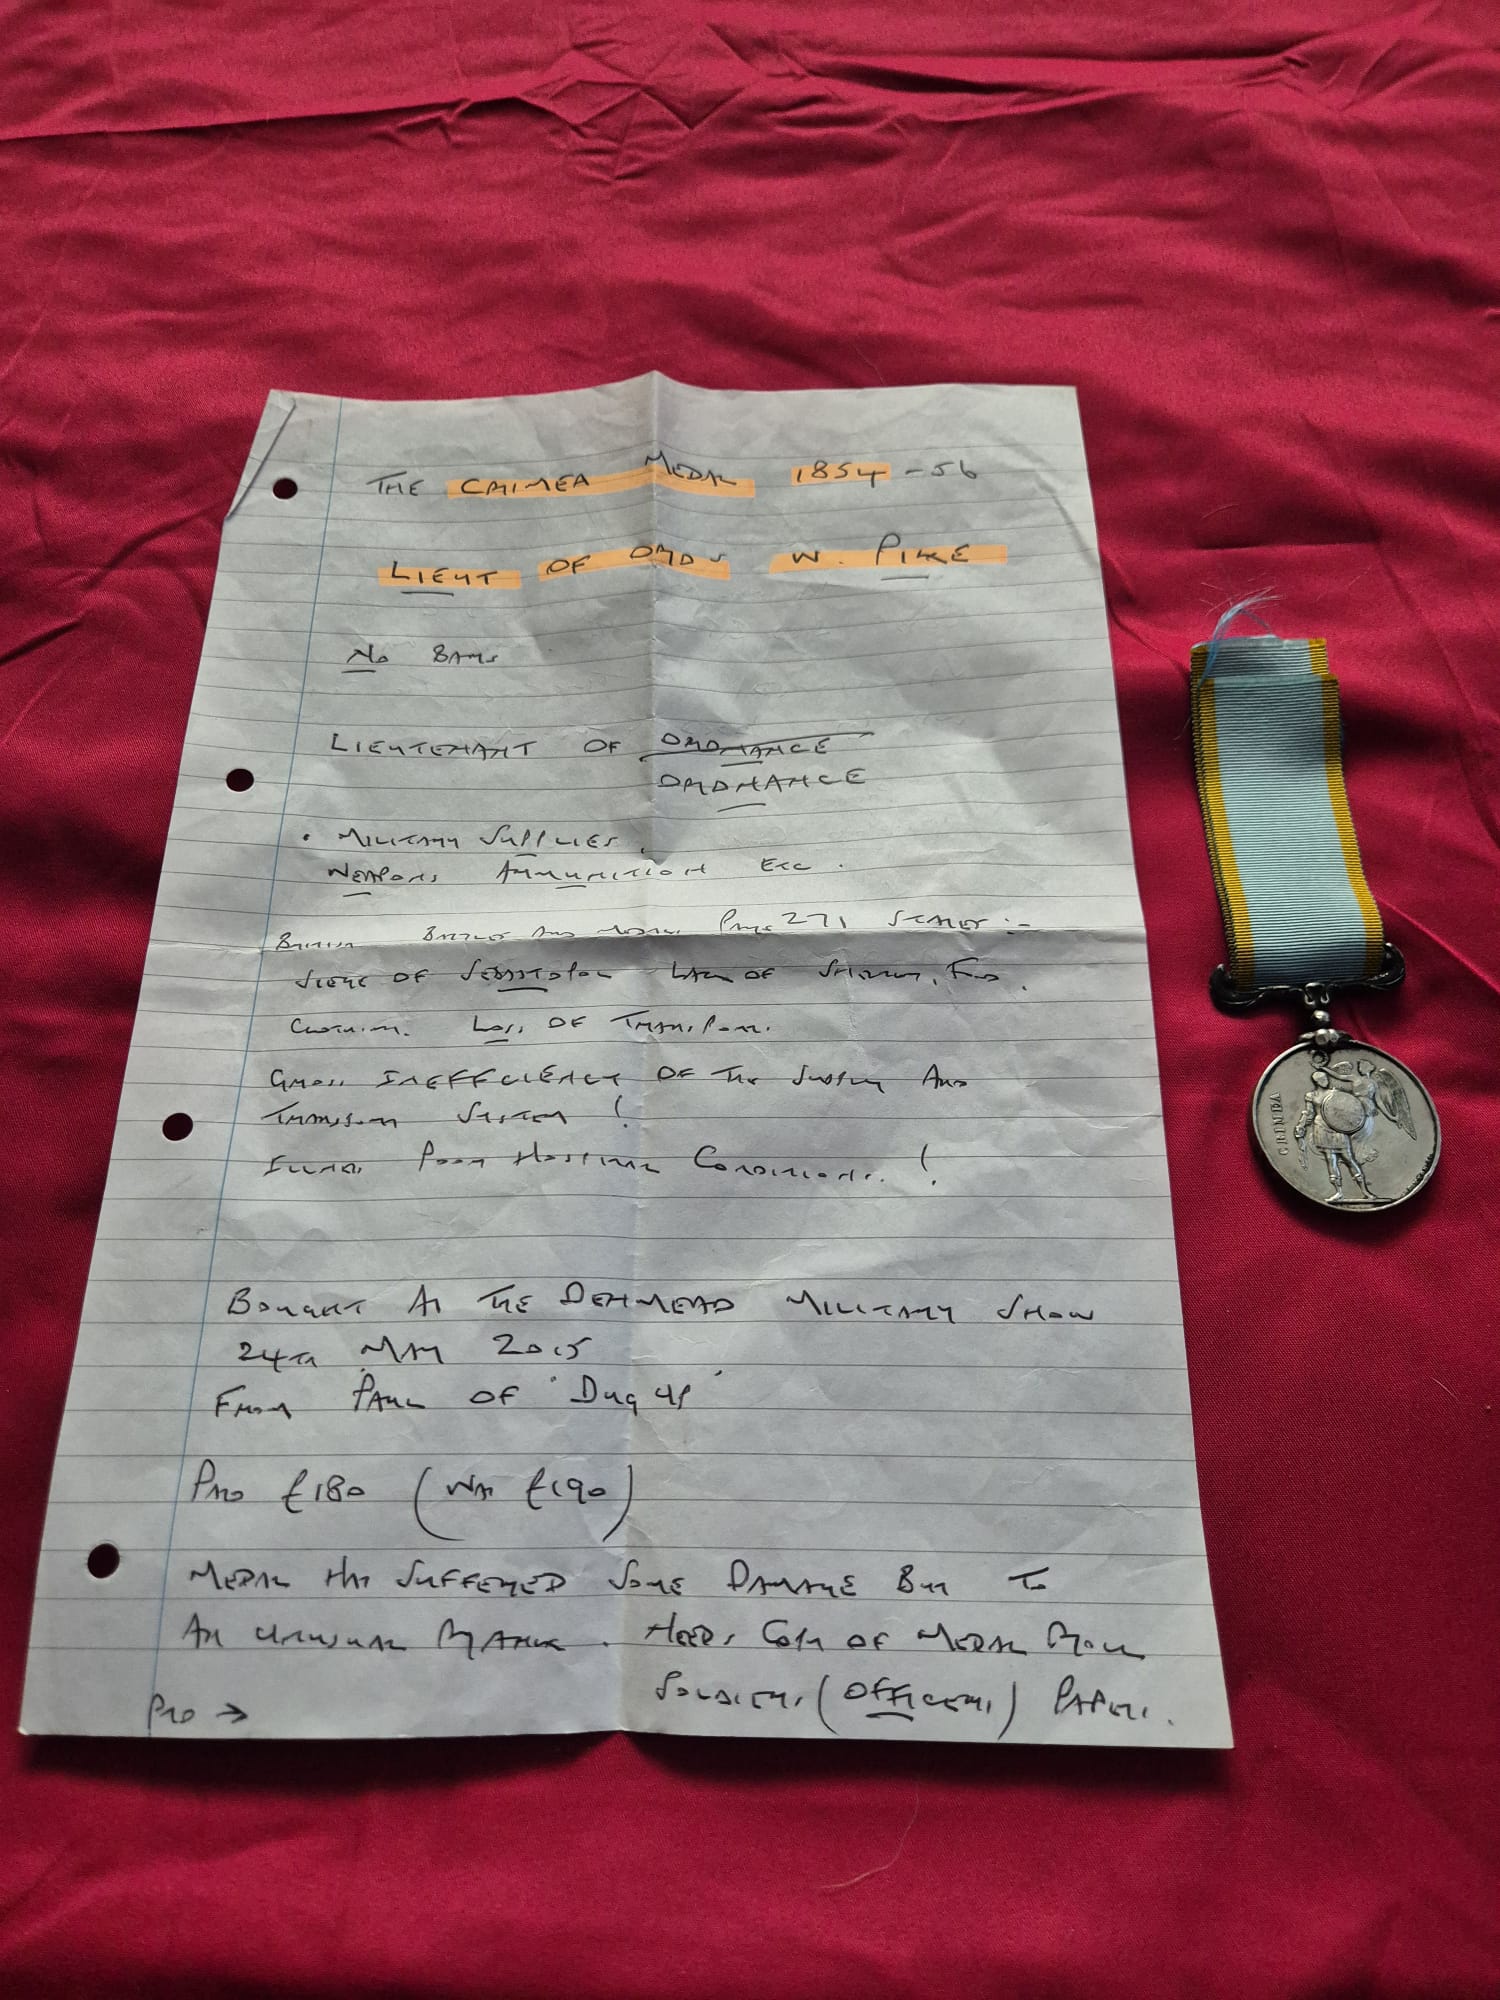 THE CRIMEA MEDAL 1854-56
LIEUT OF ORDS W. PIKE
No BARS
LIEUTENANT OF ORDNANCE
ORDNANCE
• MILITARY SUPPLIES,
WEAPONS AMMUNITION ETC.
BRITISH BATTLES AND MEDALS PAGE 271 STATES :-
SIEGE OF SEBASTOPOL LACK OF SHELTER, FOOD,
CLOTHING. LOSS OF TRANSPORT.
GROSS INEFFICIENCY OF THE SUPPLY AND
TRANSPORT SYSTEM!
ILLNESS POOR HOSPITAL CONDITIONS.!
BOUGHT AT THE DENMEAD MILITARY SHOW
24TH MAY 2015
FROM PAUL OF 'DUG UP'
PAID £180 (WAS £190)
MEDAL HAS SUFFERED SOME DAMAGE BUT TO
AN UNUSUAL RANK. NEEDS COPY OF MEDAL ROLL
SOLDIERS (OFFICERS) PAPERS.
PTO →
CRIMEA